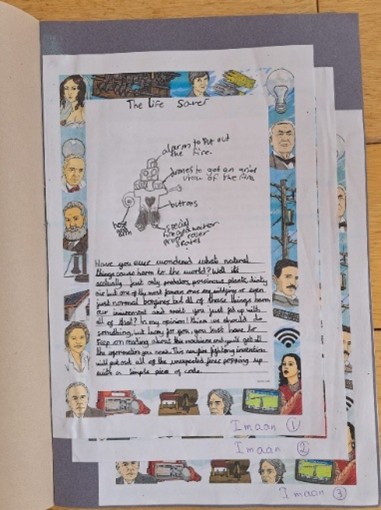 The Life Saver
alarm to put out
the fire.
drones to get an areial
view of the fire
buttons
hose
special
Have you ever wondered what natural
things cause harm to the world? Well it's
actually just only predators, poisonous plastic, dirty
air but one of the most famous ones are wildfires or even
just normal bonfires but all of these things harm
our enviroment and would you just put up with
all of that? In my opinion I think we should do
something, but lucky for you, you just have to
keep on reading about this machine and you'll get all
the information you need. This new fire fighting invention
will put out all of the unexpected fires popping up
with a simple piece of code.
Imaan 1
Imaan 2
Imaan 3